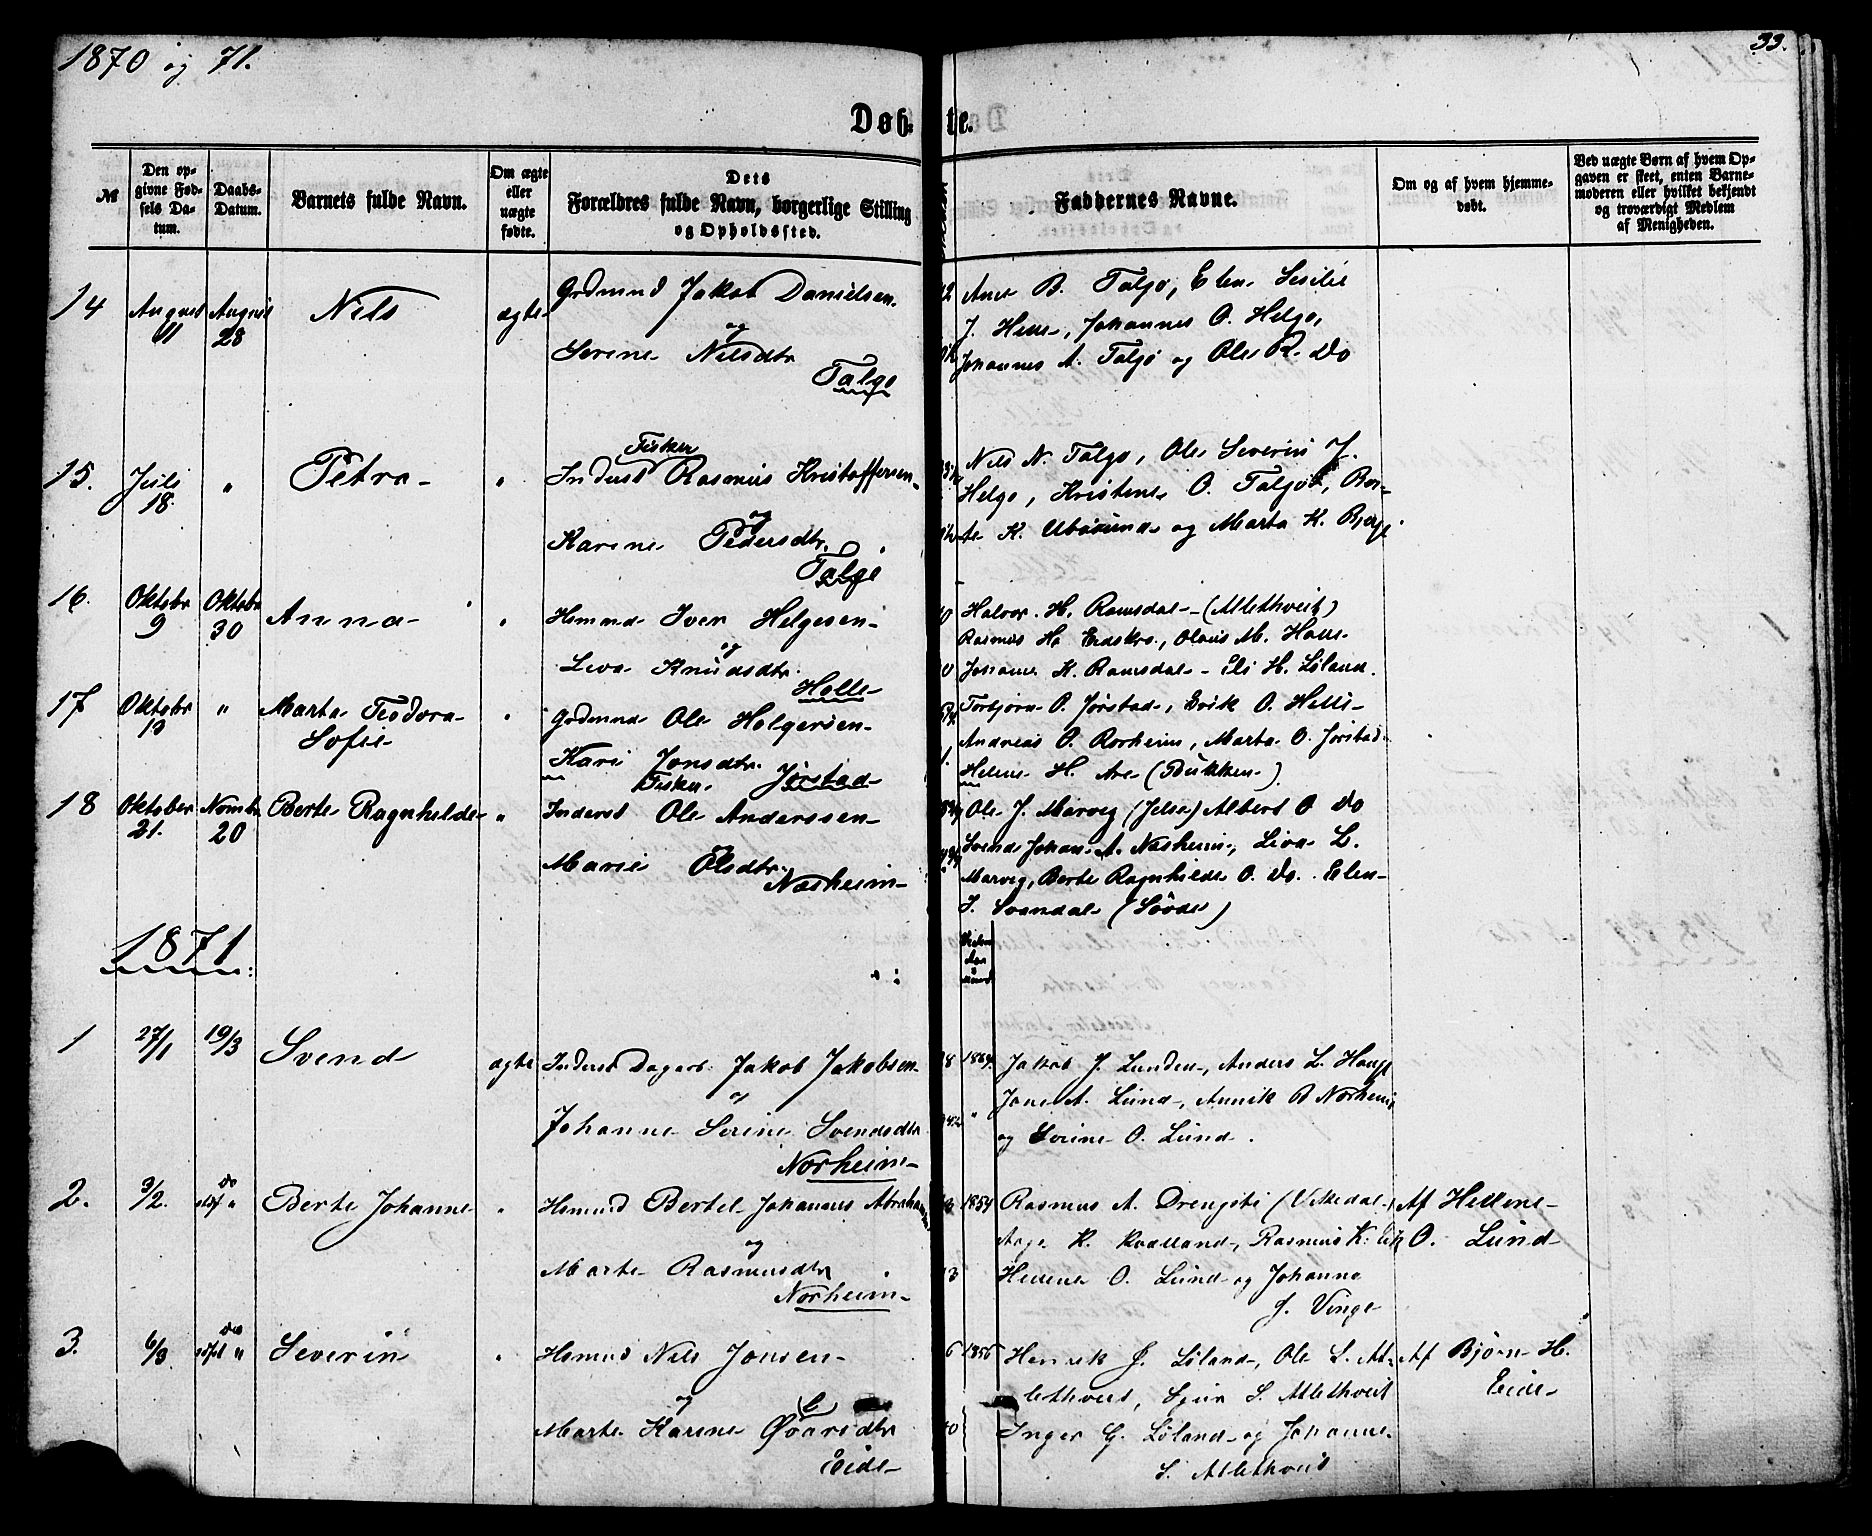 1870 og 71.
33.
Døbte.
№
Den opgivne Fødsels Datum.
Daabs-Datum.
Barnets fulde Navn.
Om ægte eller uægte fødte.
Dets Forældres fulde Navn, borgerlige Stilling og Opholdssted.
Faddernes Navne.
Om og af hvem hjemmedøbt.
Ved uægte Børn af hvem Opgaven er skeet, enten Barnemoderen eller hvilket bekjendt og troværdigt Medlem af Menigheden.
14 August 11 August 28 Nils ægte
Grdmnd Jakob Danielsen
og
Serine Nilsdtr
Talgø
B. Talgø, Elen Sesilie
J. Helle, Johannes O. Helgø,
Johannes A. Talgø og Ole R. Do
15. Juli 18. " Petra "
Fisker
Inderst Rasmus Kristoffersen
og
Karine Pedersdtr.
Talgø
Nils N. Talgø, Ole Severin J.
Helgø, Kristene O. Talgø, Ber-
te K. og Marta K. Bjerge
16. Oktobr 9 Oktobr 30 Anna "
Hsmnd Iver Helgesen
og
Liva Knudsdtr.
Helle
Halvor H. Ramsdal (Atlethveit)
Rasmus H. Eidskro, Olaus M. Helle
Johanne K. Ramsdal Eli H. Løland.
17 Oktobr 13 " Marta Teodora
Sofie
"
Grdmnd Ole Helgesen
Kari Jonsdtr.
Jørstad
Torbjørn O. Jørstad, Erik O. Helle
Andreas O. Rorheim, Marta O. Jørstad
Helene H. Are (Bukken)
18 Oktober 21. Novmbr 20 Berte Ragnhilde "
Fisker
Inderst Ole Anderssen
Marie Olsdtr.
Næsheim
Ole J. Marvig (Jelse) Albert O Do
Svend Johan A. Næsheim, Liva L.
Marvig, Berte Ragnhilde O. Do. Elen
J. Svandal (Søvde)
1871
1 27/1 19/3 Svend ægte
Inderst Dagarb. Jakob Jakobsen
og
Johanne Serine Svendsdtr
Norheim
1869.
Jakob J. Lunden, Anders L. Hauge
Jone A. Lund, Annik B Norheim
og Serine O. Lund.
2. 3/2. do Berte Johanne "
Hsmnd Bertel Johannes Abraham
og
Marte Rasmusdtr
Norheim
1854
Rasmus A. Drengsti (Vikedal)
Aage K. Kvalland, Rasmus K. Eik
Helene O. Lund og Johanna
J. Vinge
Af Hellene
O. Lund
3. 6/3 do Severin "
Hsmnd Nils Jonsen
og
Marte Karine
Eide
1856
Henrik J. Løland, Ole L. At-
lethveit, Sjur S. Atlethveit
Inger G. Løland og Johanne
S. Atlethveit
Af Bjørn H.
Eide